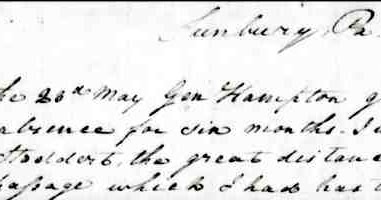 Sunbury, Pa
he 20th May Gen Hampton g
absence for six months. I
Stoddert, the great distanc
passage which I had